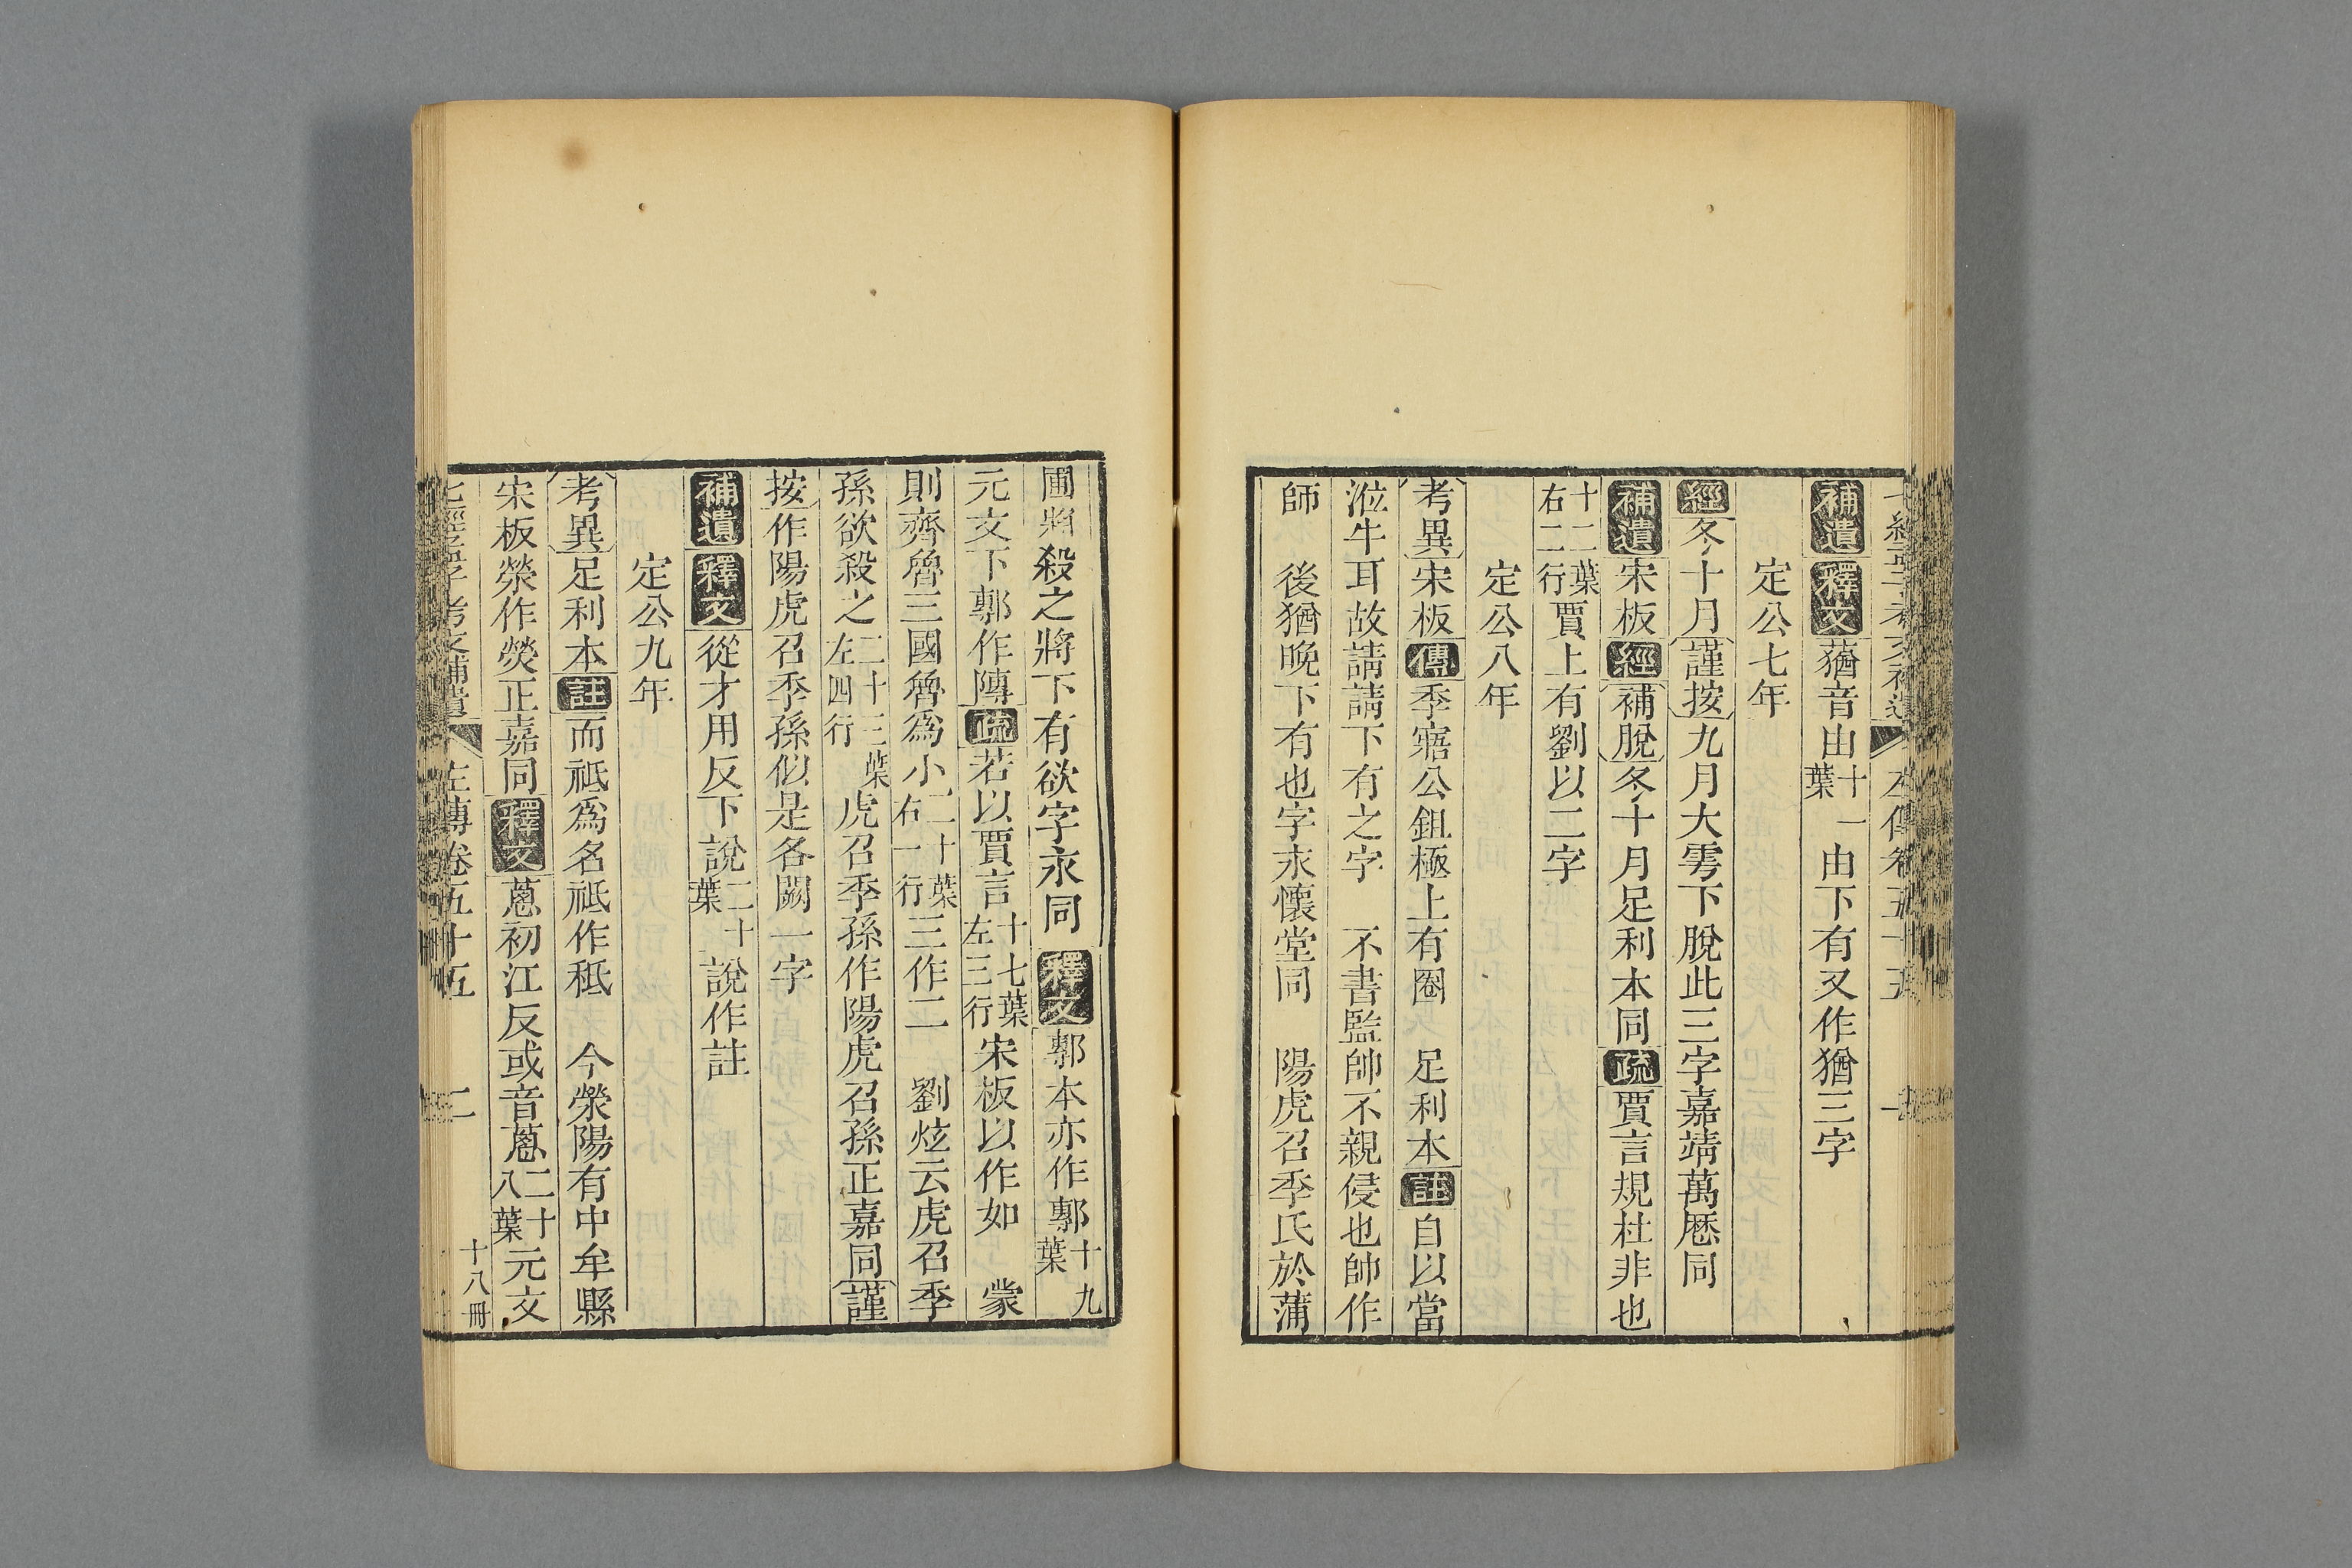 七經孟子考文補遺 左傳卷五十五 一
補遺 釋文 蕕音由十一葉 由下有又作猶三字
定公七年
經 冬十月謹按九月大雩下脫此三字嘉靖萬曆同
補遺 宋板 經 補脫冬十月足利本同 疏 賈言規杜非也
十二葉右二行賈上有劉以二字
定公八年
考異 宋板 傳 季寤公鉏極上有圈 足利本 註 自以當
涖牛耳故請請下有之字 不書監帥不親侵也帥作
師 後猶晚下有也字永懷堂同 陽虎召季氏於蒲
圃將殺之將下有欲字永同 釋文 鄟本亦作鄟十九葉
元文下鄟作 疏 若以賈言十七葉左三行 宋板以作如 蒙
則齊魯三國魯爲小二十葉右一行三作二 劉炫云虎召季
孫欲殺之二十三葉左四行 虎召季孫作陽虎召孫正嘉同謹
按作陽虎召季孫似是各闕一字
補遺 釋文 從才用反下說二十葉 說作註
定公九年
考異 足利本 註 而祗爲名祗作秪 今滎陽有中牟縣
宋板滎作熒正嘉同 釋文 蔥初江反或音蔥二十八葉元文
七經孟子考文補遺 左傳卷五十五 二 十八冊